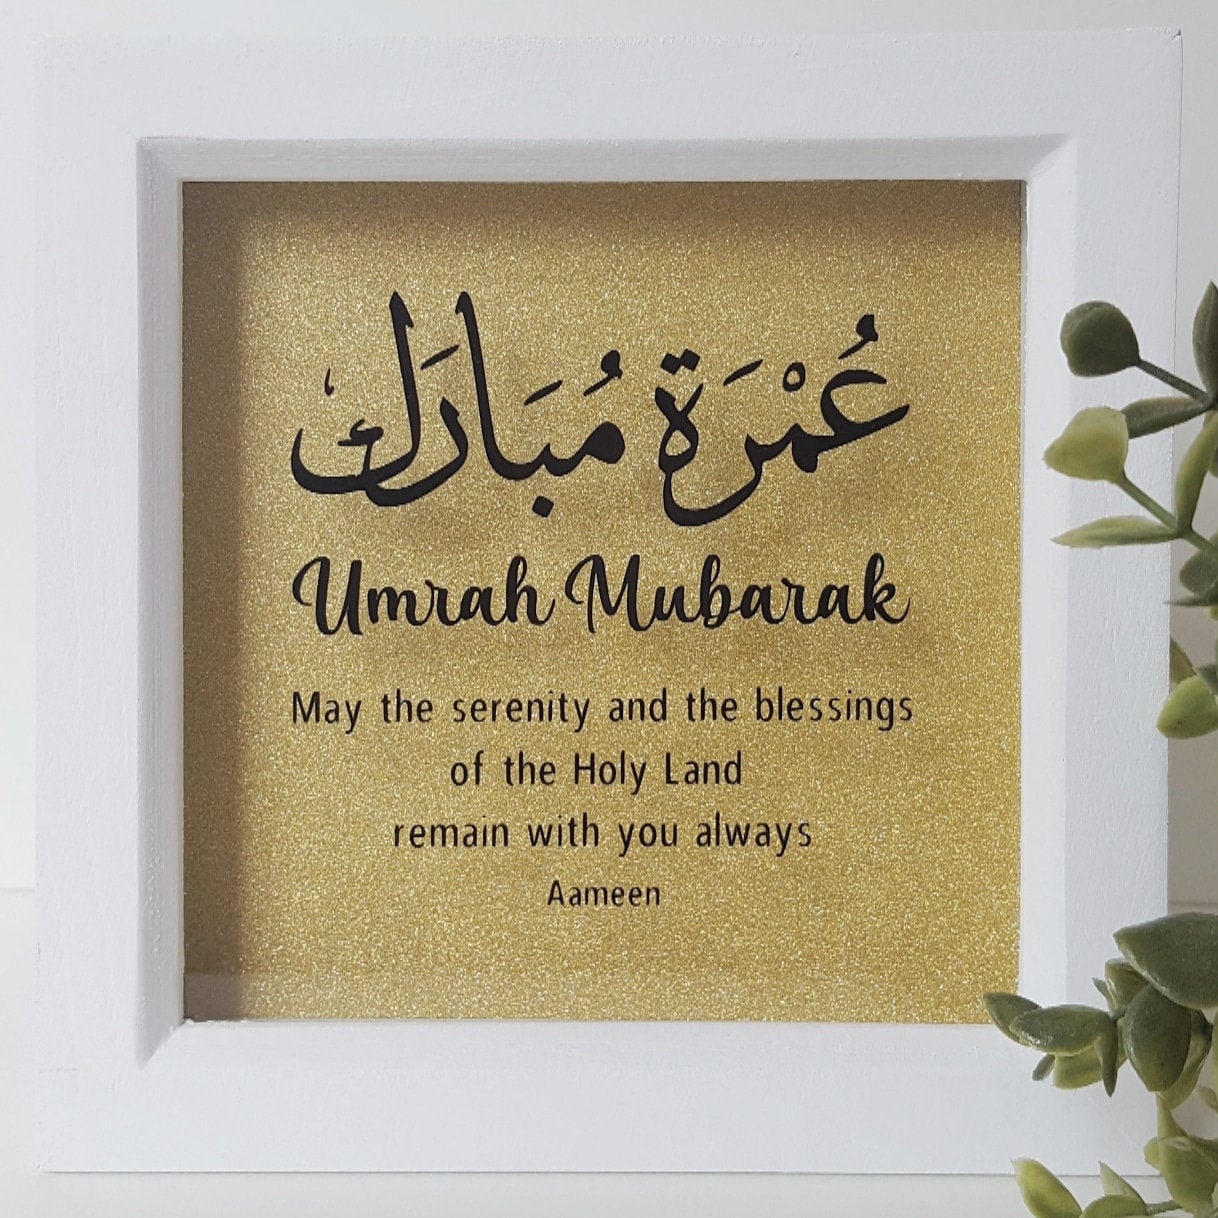 عُمْرَة مُبَارَك
Umrah Mubarak
May the serenity and the blessings
of the Holy Land
remain with you always
Aameen